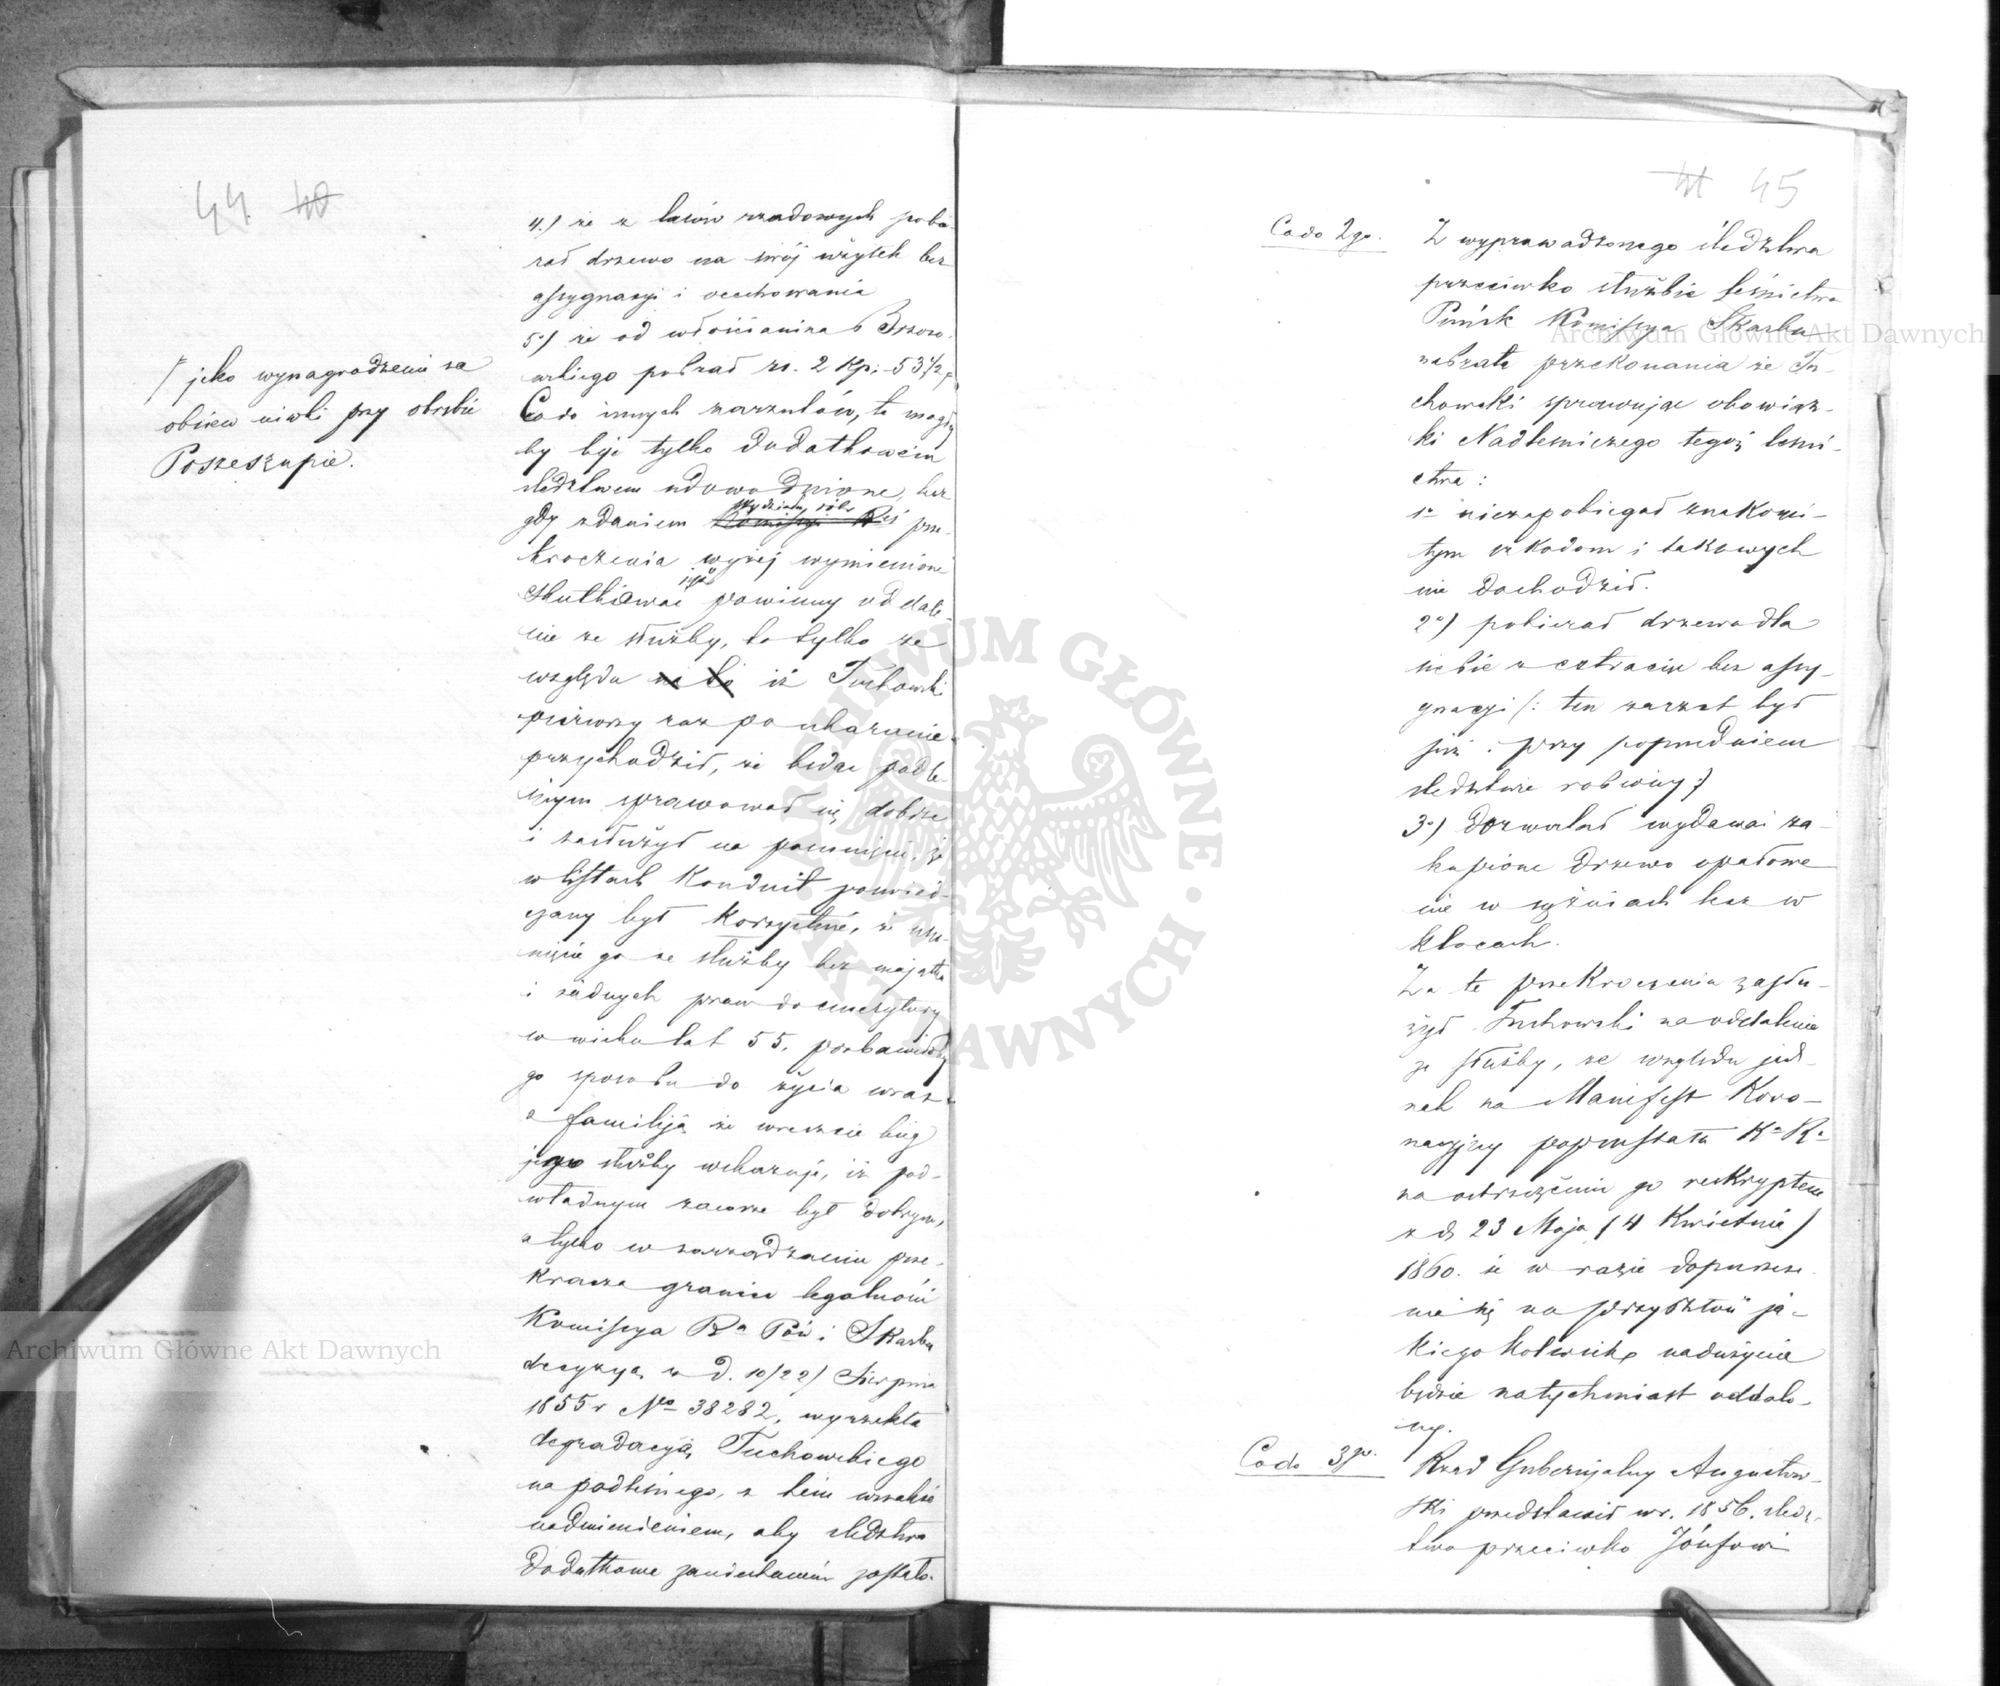 44. 40
4.) że z lasów rządowych pobie-
rał drzewo na swój użytek bez
assygnacyi i ocechowania
5o) że od włościanina Brzozo-
wskiego pobrał rs. 2 kp. 53 1/2
/ jako wynagrodzenie za
obsiew niwki przy obrębie
Poszeszupie.
Co do innych zarzutów, te mogły
by być tylko dodatkowem
śledztwem udowodnione, lecz
gdy zdaniem Wydziału
przekroczenia wyżej wymienione
skutkować już powinny oddale-
nie ze służby, to tylko ze
względu iż Tuchowski
pierwszy raz po ukaranie
przychodził, że będąc podle-
śnym sprawował się dobrze
i zasłużył na pomnięcie, że
w listach Konduit poświad-
czany był korzystnie, że usu-
nięcie go ze służby bez majątku
i żadnych praw do emerytury
w wieku lat 55, pozbawiłoby
go sposobu do życia wraz
z familiją że wreszcie bieg
jego służby wskazuje, iż pod-
władnym zawsze był dobrym,
a tylko w zarządzaniu prze-
kracza granice legalności
Komissya Ra Pw i Skarbu
decyzyą z d. 10/22) Sierpnia
1855 r No 38282, wyrzekła
degradacyą Tuchowskiego
na podleśnego, z tem wszakże
nadmienieniem, aby śledztwo
dodatkowe zaniechanem zostało.
41 45
Co do 2go.
Z wyprowadzonego śledztwa
przeciwko służbie leśnictwa
Puńsk Komissya Skarbu
nabrała przekonania że Tu-
chowski sprawując obowiąz-
ki Nadleśniczego tegoż leśni-
ctwa:
1o niezapobiegał znakomi-
tym szkodom i takowych
nie dochodził.
2o) pobierał drzewo dla
siebie bez assy-
gnacyi /: ten zarzut był
już i przy poprzedniem
śledztwie robiony :/
3o) dozwalał wydawać za-
kupione drzewo opałowe
nie w sążniach lecz w
klocach.
Za te przekroczenia zasłu-
żył Tuchowski na oddalenie
ze służby, ze względu jed-
nak na Manifest Koro-
nacyjny poprzestała Ka Ra
na ostrzeżeniu go reskryptem
z d. 23 Maja (4 Kwietnia)
1860. że w razie dopuszcze-
nia się na przyszłość ja-
kiegokolwiek nadużycia
będzie natychmiast oddalo-
ny.
Co do 3go.
Rząd Gubernjalny Augustow-
ski przedstawił w r. 1856. śledz-
two przeciwko Józefowi
Archiwum Główne Akt Dawnych
Archiwum Główne Akt Dawnych
ARCHIWUM GŁÓWNE AKT DAWNYCH